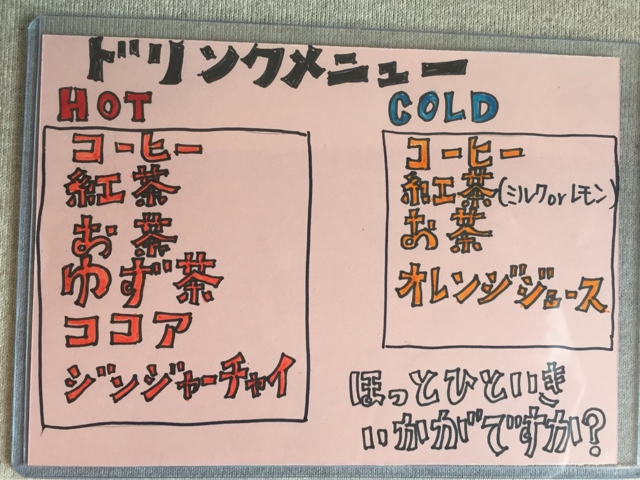 ドリンクメニュー
HOT
コーヒー
紅茶
お茶
ゆず茶
ココア
ジンジャーチャイ
COLD
コーヒー
紅茶(ミルクorレモン)
お茶
オレンジジュース
ほっとひといき
いかがですか?